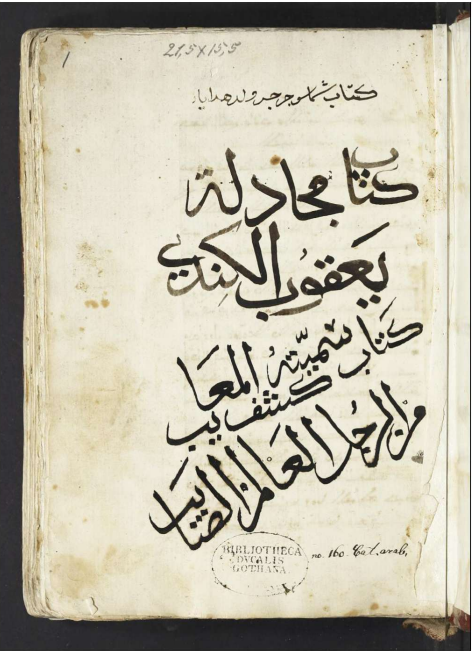 1
21,5 X 15,5
كتاب شماس جرجس ولد هدايا
كتاب مجادلة
يعقوب الكندي
كتاب سميته المعا
كشف يب
من الرجل العالم الصايب
BIBLIOTHECA
DVCALIS
GOTHANA
no. 160. Cat. arab.